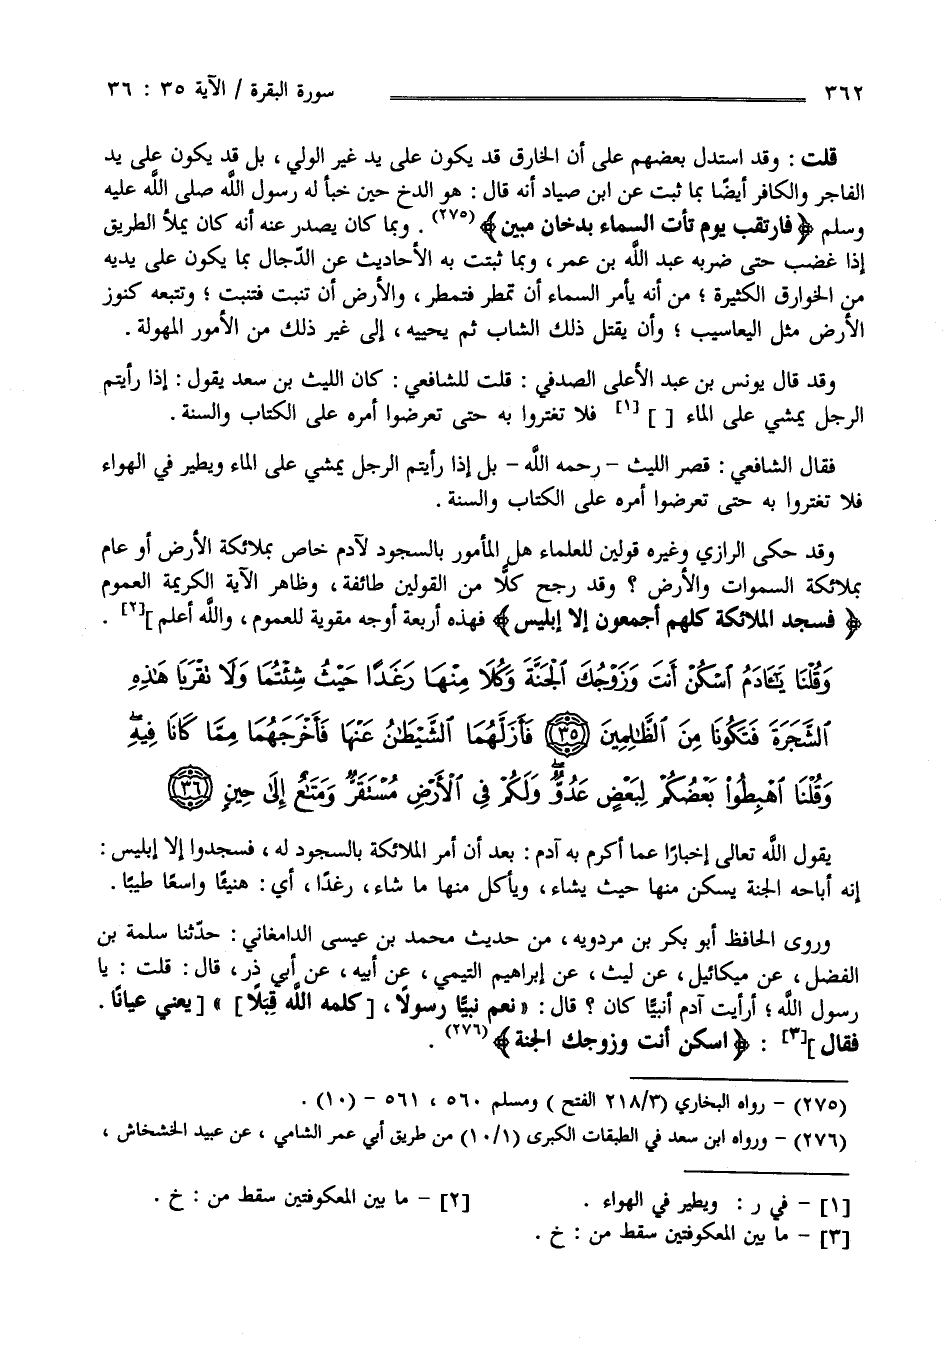 ٣٦٢ سورة البقرة / الآية ٣٥ : ٣٦
قلت : وقد استدل بعضهم على أن الخارق قد يكون على يد غير الولي ، بل قد يكون على يد
الفاجر والكافر أيضًا بما ثبت عن ابن صياد أنه قال : هو الدخ حين خبأ له رسول اللَّه صلى اللَّه عليه
وسلم ﴿فارتقب يوم تأت السماء بدخان مبين﴾(٢٧٥) . وبما كان يصدر عنه أنه كان يملأ الطريق
إذا غضب حتى ضربه عبد اللَّه بن عمر ، وبما ثبتت به الأحاديث عن الدّجال بما يكون على يديه
من الخوارق الكثيرة ؛ من أنه يأمر السماء أن تمطر فتمطر ، والأرض أن تنبت فتنبت ؛ وتتبعه كنوز
الأرض مثل اليعاسيب ؛ وأن يقتل ذلك الشاب ثم يحييه ، إلى غير ذلك من الأمور المهولة .
وقد قال يونس بن عبد الأعلى الصدفي : قلت للشافعي : كان الليث بن سعد يقول : إذا رأيتم
الرجل يمشي على الماء [ ][١] فلا تغتروا به حتى تعرضوا أمره على الكتاب والسنة .
فقال الشافعي : قصر الليث - رحمه اللَّه - بل إذا رأيتم الرجل يمشي على الماء ويطير في الهواء
فلا تغتروا به حتى تعرضوا أمره على الكتاب والسنة .
وقد حكى الرازي وغيره قولين للعلماء هل المأمور بالسجود لآدم خاص بملائكة الأرض أو عام
بملائكة السموات والأرض ؟ وقد رجح كلًّا من القولين طائفة ، وظاهر الآية الكريمة العموم
﴿فسجد الملائكة كلهم أجمعون إلا إبليس﴾ فهذه أربعة أوجه مقوية للعموم ، واللَّه أعلم ][٢] .
وَقُلْنَا يَٰٓـَٔادَمُ ٱسْكُنْ أَنتَ وَزَوْجُكَ ٱلْجَنَّةَ وَكُلَا مِنْهَا رَغَدًا حَيْثُ شِئْتُمَا وَلَا تَقْرَبَا هَٰذِهِ
ٱلشَّجَرَةَ فَتَكُونَا مِنَ ٱلظَّٰلِمِينَ ٣٥ فَأَزَلَّهُمَا ٱلشَّيْطَٰنُ عَنْهَا فَأَخْرَجَهُمَا مِمَّا كَانَا فِيهِۖ
وَقُلْنَا ٱهْبِطُوا۟ بَعْضُكُمْ لِبَعْضٍ عَدُوٌّۖ وَلَكُمْ فِى ٱلْأَرْضِ مُسْتَقَرٌّ وَمَتَٰعٌ إِلَىٰ حِينٍ ٣٦
يقول اللَّه تعالى إخبارًا عما أكرم به آدم : بعد أن أمر الملائكة بالسجود له ، فسجدوا إلا إبليس :
إنه أباحه الجنة يسكن منها حيث يشاء ، ويأكل منها ما شاء ، رغدًا ، أي : هنيئًا واسعًا طيبًا .
وروى الحافظ أبو بكر بن مردويه ، من حديث محمد بن عيسى الدامغاني : حدّثنا سلمة بن
الفضل ، عن ميكائيل ، عن ليث ، عن إبراهيم التيمي ، عن أبيه ، عن أبي ذر ، قال : قلت : يا
رسول اللَّه ؛ أرأيت آدم أنبيًّا كان ؟ قال : «نعم نبيًّا رسولًا ، [كلمه اللَّه قِبَلًا] » [يعني عيانًا .
فقال ][٣] : ﴿اسكن أنت وزوجك الجنة﴾(٢٧٦) .
(٢٧٥) - رواه البخاري (٢١٨/٣ الفتح ) ومسلم ٥٦٠ ، ٥٦١ - (١٠) .
(٢٧٦) - ورواه ابن سعد في الطبقات الكبرى (١٠/١) من طريق أبي عمر الشامي ، عن عبيد الخشخاش ،
[١] - في ر : ويطير في الهواء . [٢] - ما بين المعكوفتين سقط من : خ .
[٣] - ما بين المعكوفتين سقط من : خ .